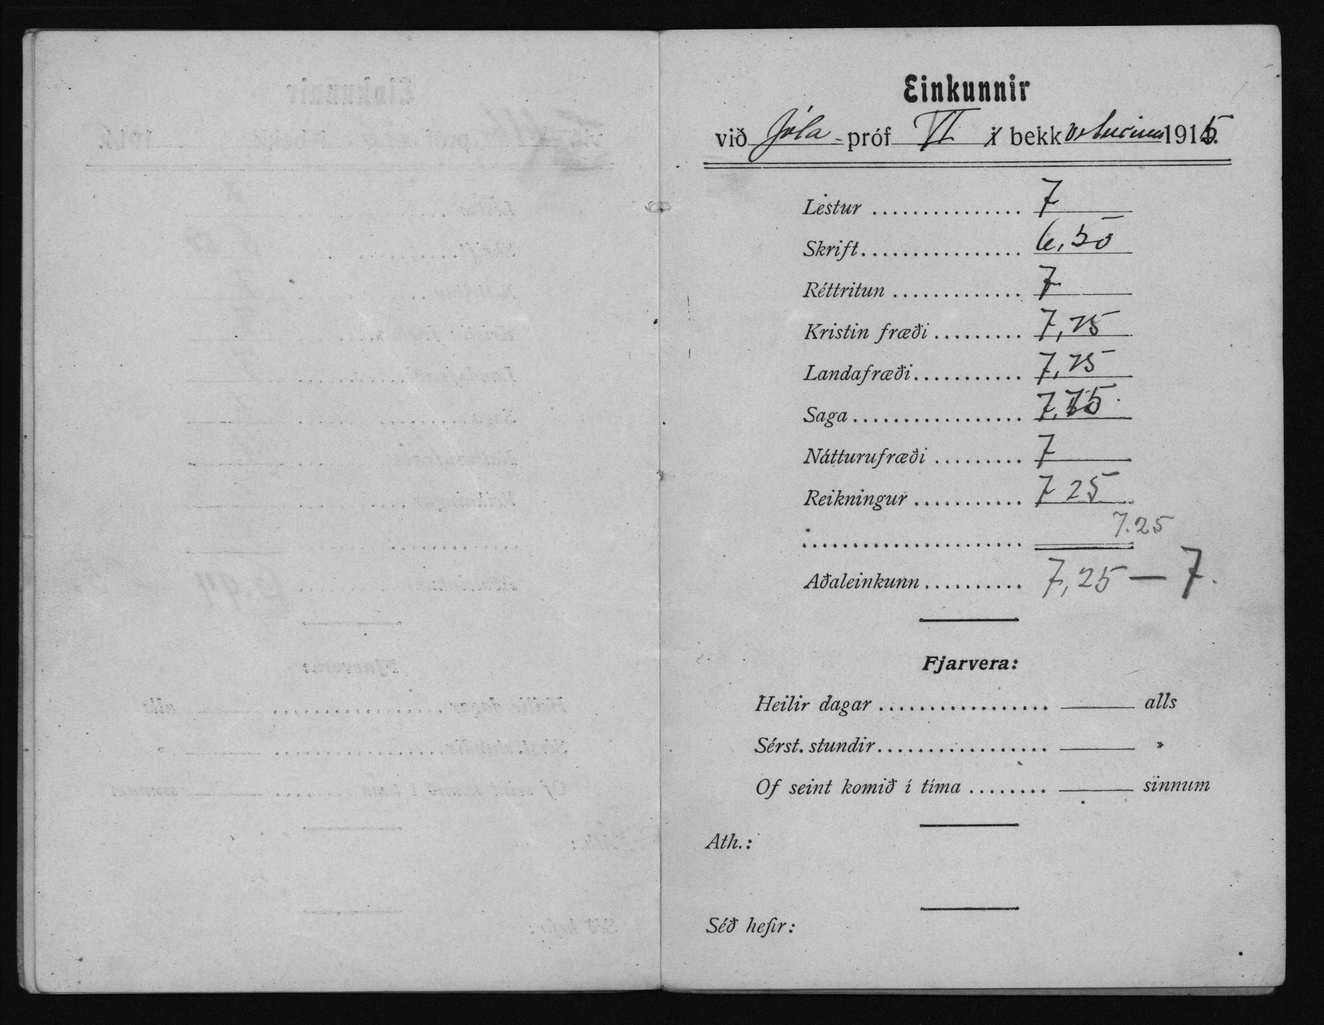 Einkunnir
við Jóla-próf VI í bekk veturinn 1915.
Lestur ............... 7
Skrift ................ 6,50
Réttritun ............ 7
Kristin fræði ......... 7,25
Landafræði ........... 7,25
Saga ................. 7,75
Nátturufræði ......... 7
Reikningur ........... 7 25
7.25
Aðaleinkunn .......... 7,25 — 7.
Fjarvera:
Heilir dagar ................ alls
Sérst. stundir ................. "
Of seint komið í tíma ........ sinnum
Ath.:
Séð hefir: